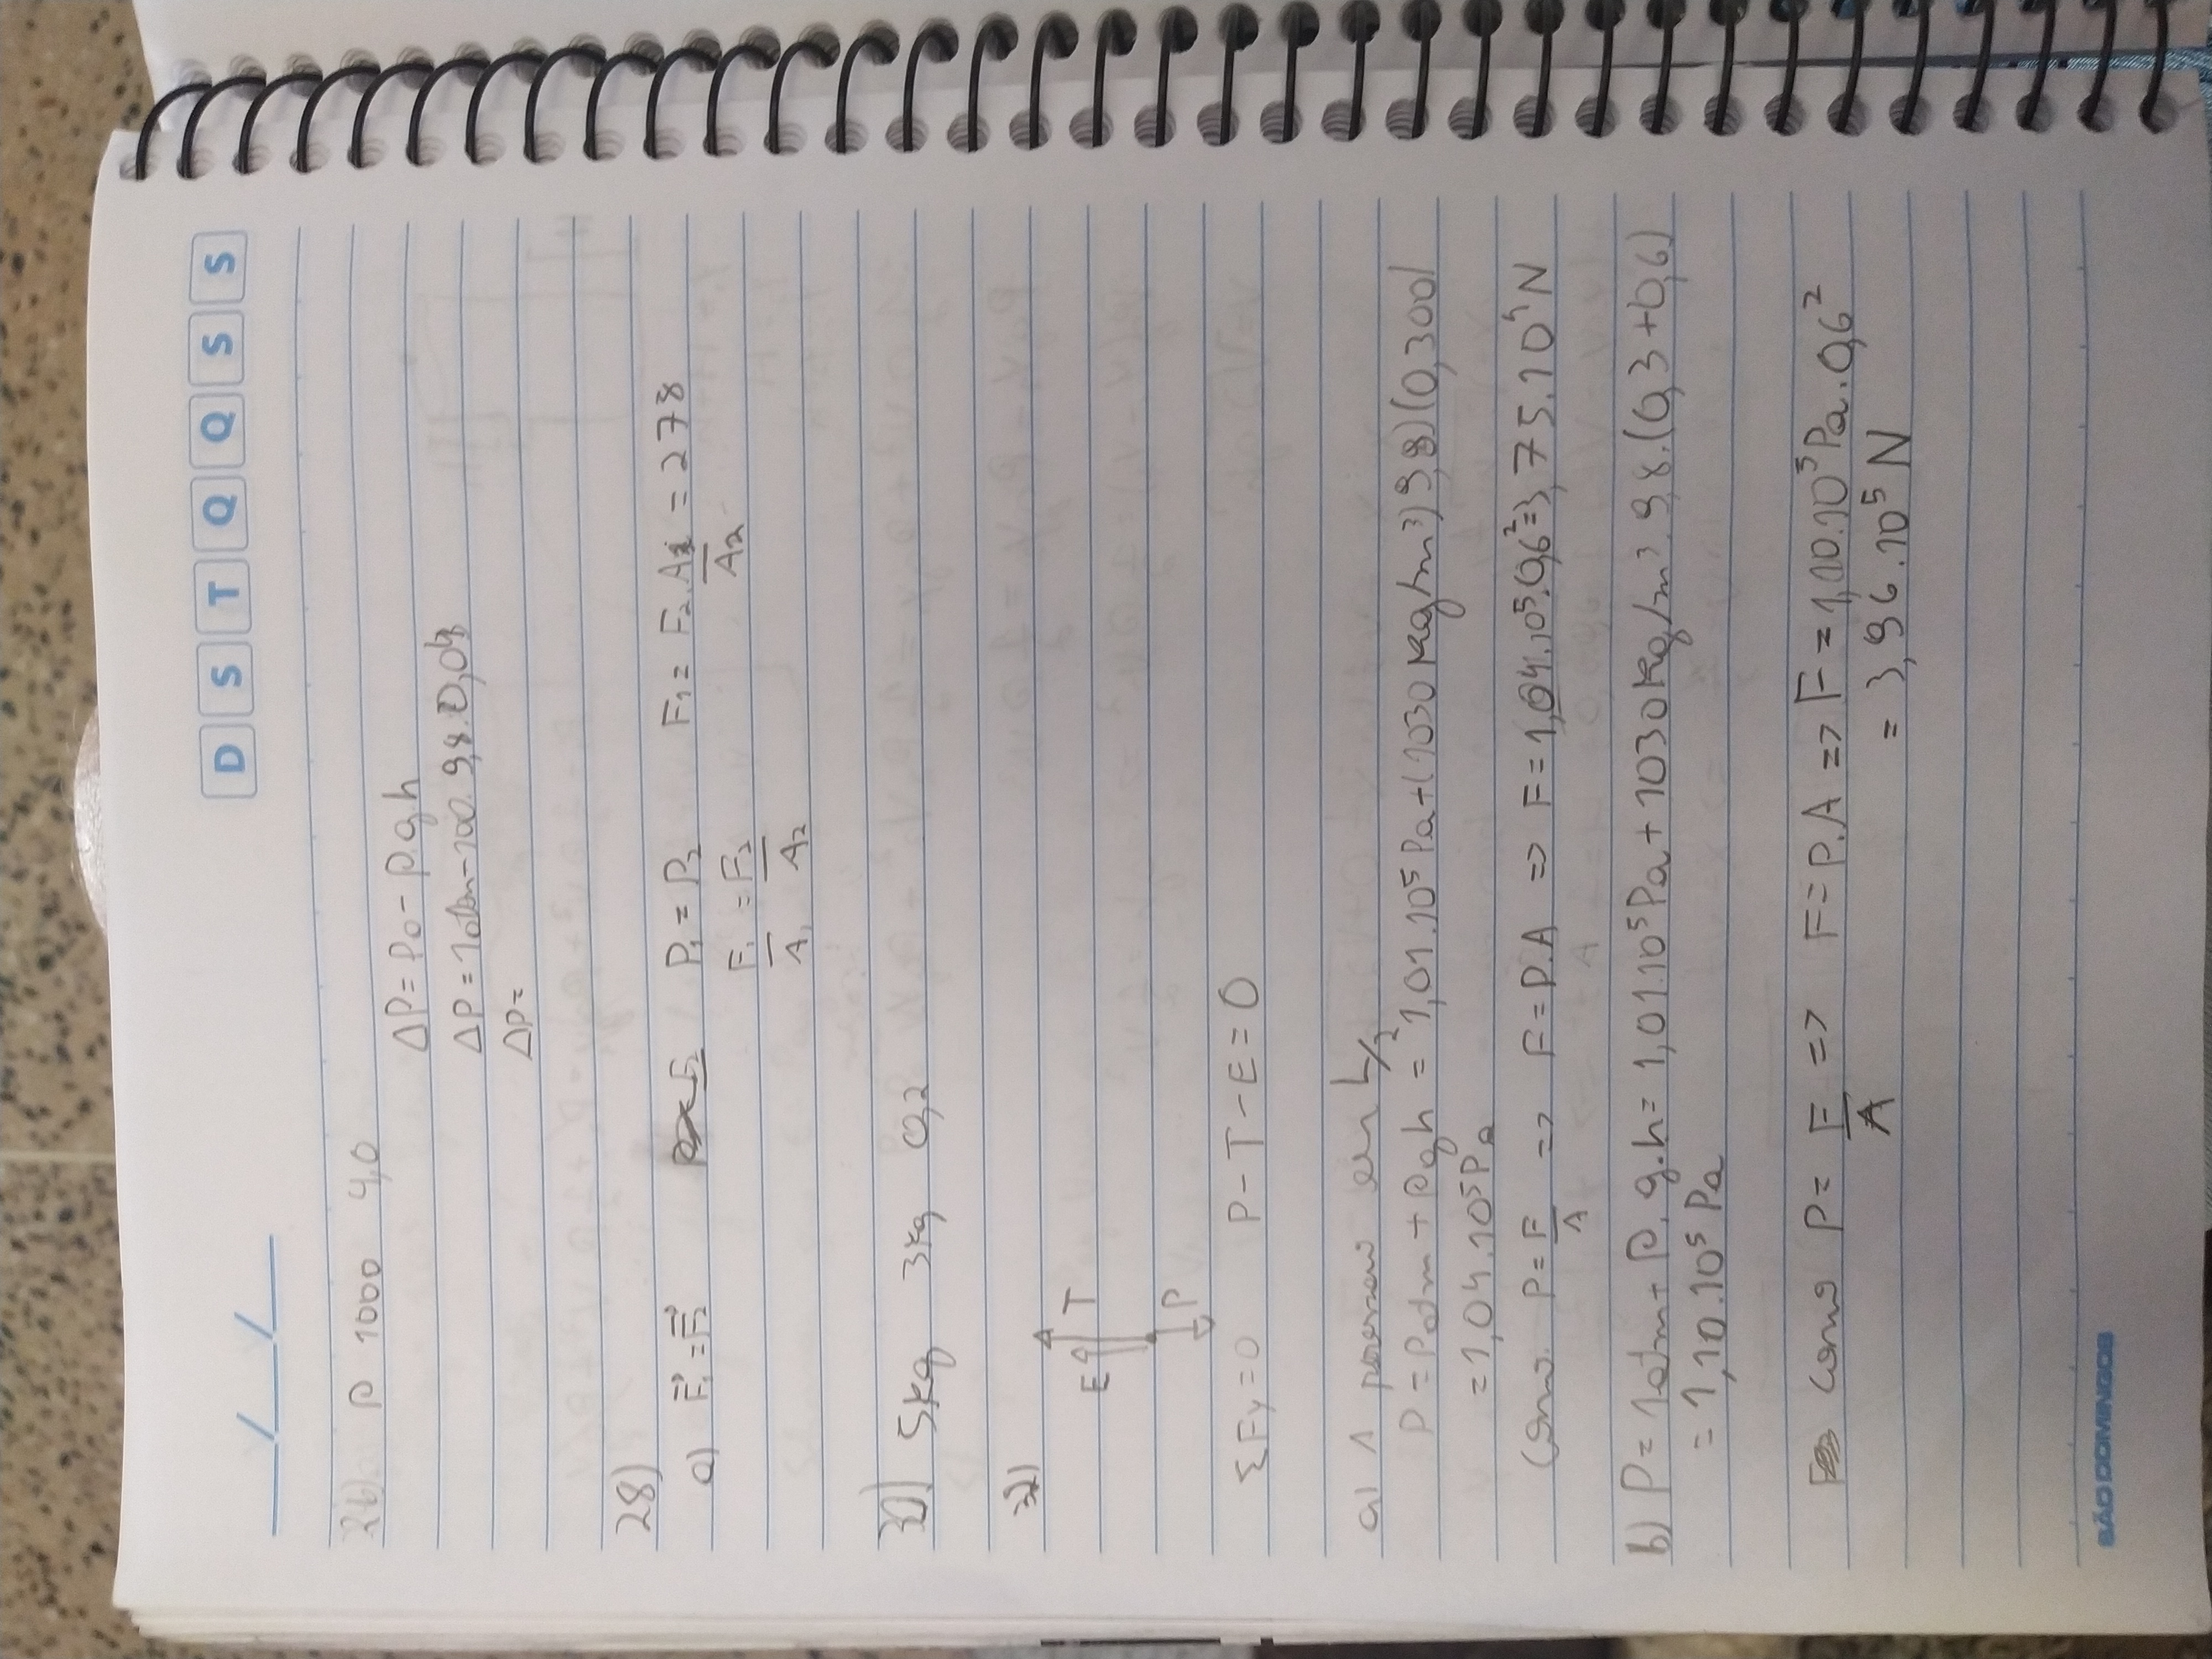 __/__/__ D S T Q Q S S
26) a) ρ 1000 4,0
ΔP = P0 - ρgh
ΔP = 1atm - 100. 9,8. 0,04
ΔP =
28)
a) F1 = F2 P1 = P2 F1 = F2.A1 = 278
F1 = F2 A2
A1 A2
30) 5kg 3kg 0,2
32)
E T
P
ΣFy=0 P-T-E=0
a) 1 em L/2
P = Patm + ρgh = 1,01.10⁵ Pa + (1030 kg/m³) 9,8) (0,300)
= 1,04.10⁵Pa
Como P = F => F = P.A => F = 1,04.10⁵.0,6² = 3,75.10⁴ N
A
b) P = 1atm + ρ.g.h = 1,01.10⁵Pa + 1030kg/m³. 9,8.(0,3+0,6)
= 1,10.10⁵ Pa
Como P = F => F = P.A => F = 1,10.10⁵Pa. 0,6²
A = 3,96.10⁵ N
SÃO DOMINGOS